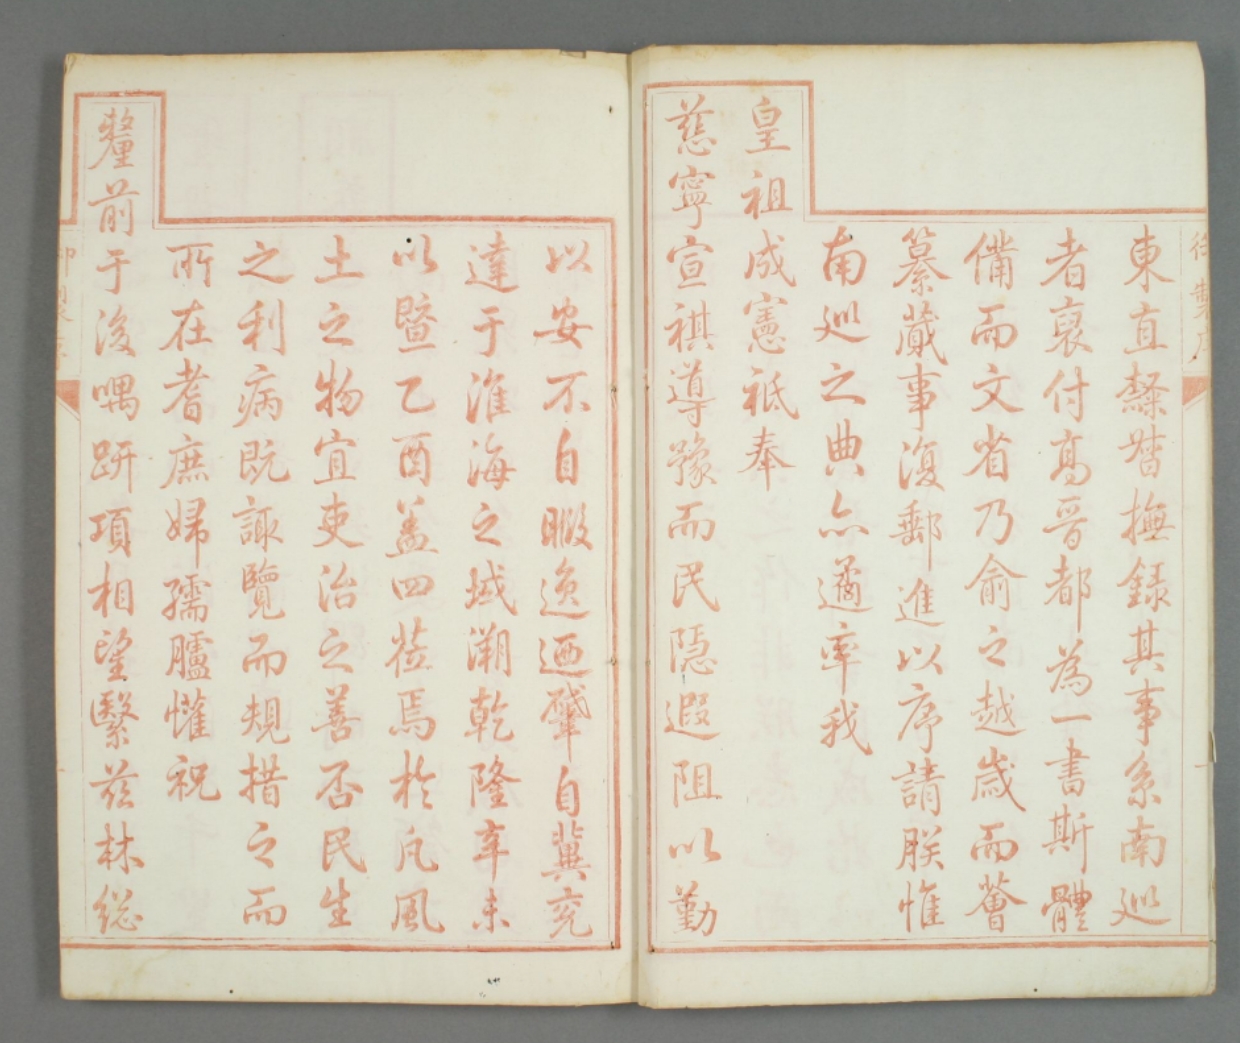 御製序
東直隸督撫録其事系南廵
者裒付髙晉都為一書斯體
備而文省乃俞之越歲而薈
纂蕆事復郵進以序請朕惟
南廵之典亦遹率我
皇祖成憲祗奉
慈寧宣祺導豫而民隱遐阻以勤
以安不自暇逸迺肇自冀兖
達于淮海之域溯乾隆辛未
以曁乙酉葢四莅焉扵凡風
土之物宜吏治之善否民生
之利病既諏覽而規措之而
所在耆庶婦孺臚懽祝
釐前于後喁趼項相望繄兹林緫